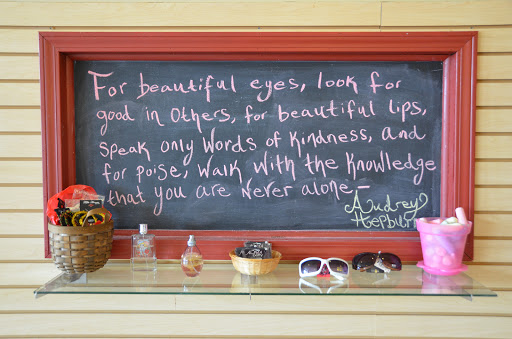 For beautiful eyes, look for
good in others, for beautiful lips,
speak only words of kindness, and
for poise, walk with the knowledge
that you are never alone -
Audrey
Hepburn